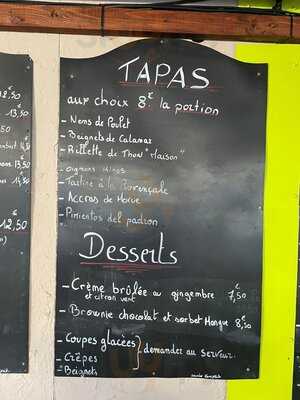 8,50
13,50
5,50
14,50
13,50
14,50
12,50
TAPAS
aux choix 8€ la portion
- Nems de Poulet
- Beignets de Calamar
- Rillette de Thon "Maison"
- oignons Rings
- Tartine à la Provençale
- Accras de Morue
- Pimientos del padron
Desserts
- Crème brûlée au gingembre 7,50 €
et citron vert
- Brownie chocolat et sorbet Mangue 8,50
- Coupes glacées
- Crêpes
demander au serveur
- Beignets